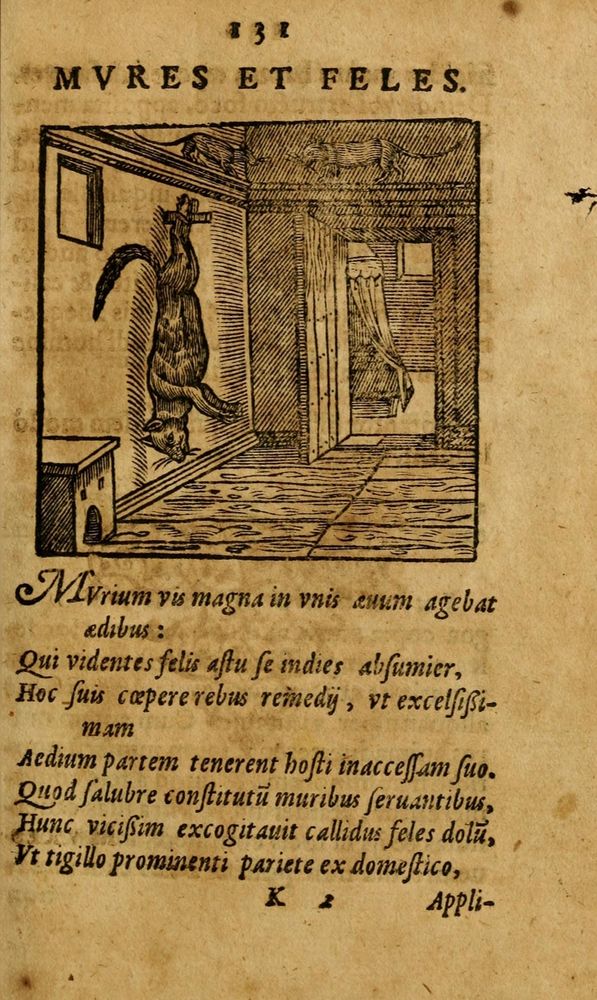 131
MVRES ET FELES.
MVrium vis magna in vnis æuum agebat
ædibus:
Qui videntes felis aſtu ſe indies abſumier,
Hoc ſuis cœpere rebus remedij, vt excelſiſſi-
mam
Aedium partem tenerent hoſti inacceſſam ſuo.
Quod ſalubre conſtitutū muribus ſeruantibus,
Hunc viciſſim excogitauit callidus feles dolū,
Vt tigillo prominenti pariete ex domeſtico,
K 2 Appli-